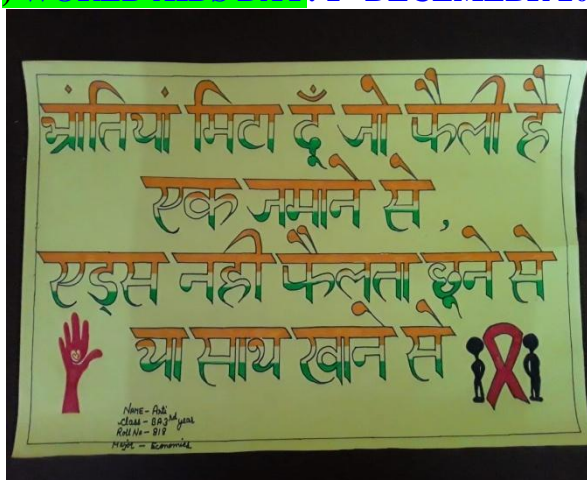 WORLD AIDS DAY
भ्रांतियां मिटा दूँ जो फैली है
एक जमाने से ,
एड्स नही फैलता छूने से
या साथ खाने से
NAME - Arti
Class - BA 3rd year
Roll No - 818
Major - Economics